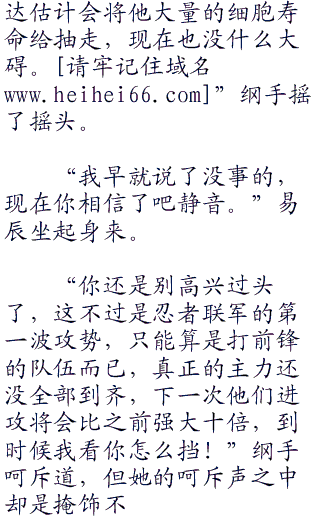 达估计会将他大量的细胞寿
命给抽走，现在也没什么大
碍。[请牢记住域名
www.heihei66.com]”纲手摇
了摇头。
“我早就说了没事的，
现在你相信了吧静音。”易
辰坐起身来。
“你还是别高兴过头
了，这不过是忍者联军的第
一波攻势，只能算是打前锋
的队伍而已，真正的主力还
没全部到齐，下一次他们进
攻将会比之前强大十倍，到
时候我看你怎么挡！”纲手
呵斥道，但她的呵斥声之中
却是掩饰不